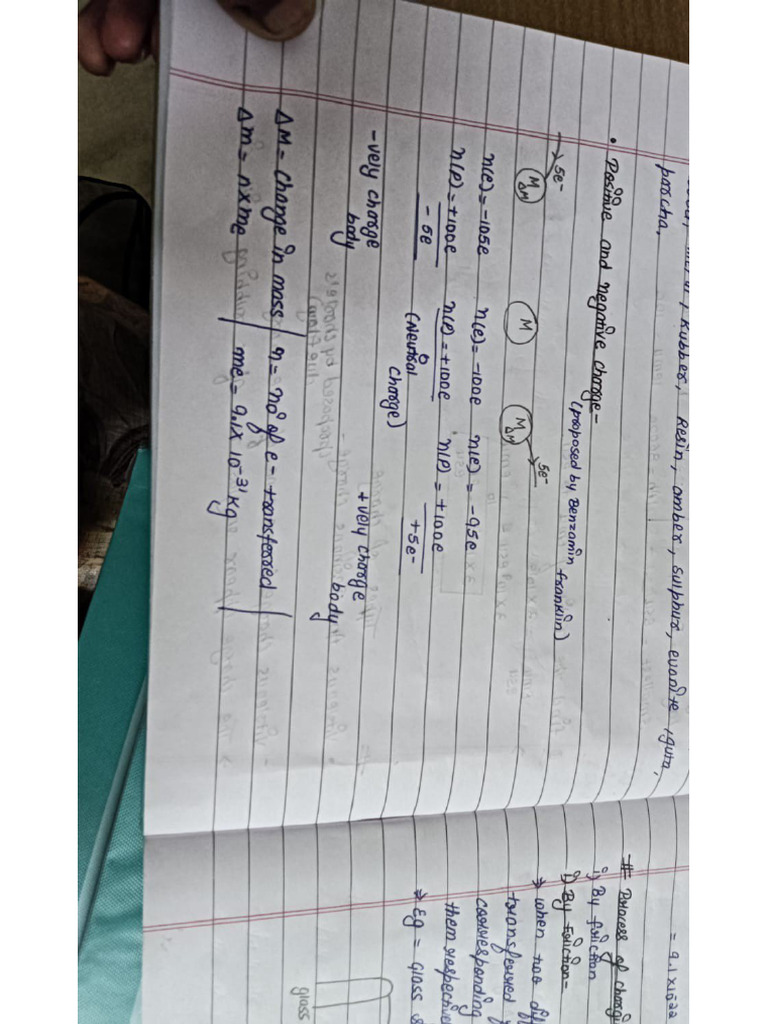 Rubber, Resin, amber, sulphur, evanite, guta,
porcha,
• Positive and negative charge-
(proposed by Benzamin franklin)
→ 5e-
M
ΔM
M
M
ΔM
→ 5e-
n(e) = -105e n(e) = -100e n(e) = -95e
n(P) = +100e n(P) = +100e n(P) = +100e
- 5e
(Neutral
charge)
+5e-
-vely charge
body
+vely charge
body
ΔM = change in mass | n = no of e- transferred
Δm = n×me | me = 9.1×10-31 kg
= 9.1×10
# Process of
i) By friction
i) By friction-
→ when two
transferred
corresponding
them respective
→ Eg = glass
glass